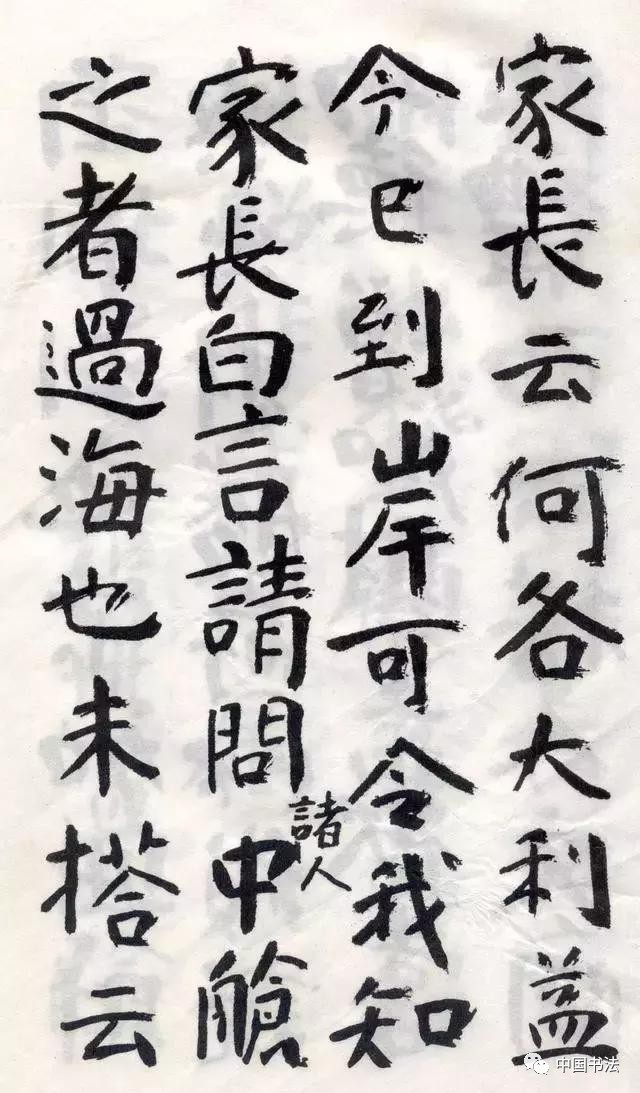 家長云何各大利益
今已到岸可令我知
諸人
家長白言請問中艙
之者過海也未搭云
中国书法